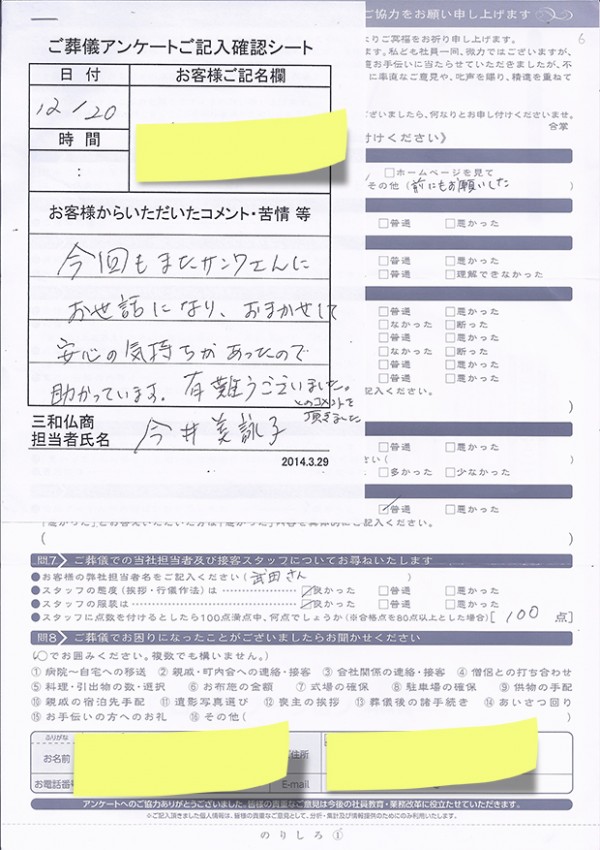 ご協力をお願い申し上げます
6
ご葬儀アンケートご記入確認シート
日付
お客様ご記名欄
12/20
時間
:
お客様からいただいたコメント・苦情 等
今回もまたサンワさんに
お世話になり、おまかせして
安心の気持ちがあったので
助かっています。有難うございました。
とのコメントを
頂きました
三和仏商
担当者氏名
今井 美詠子
2014.3.29
りご冥福をお祈り申し上げます。
ます。私ども社員一同、微力ではございますが、
お手伝いに当たらせていただきましたが、不
に率直なご意見や、叱声を賜り、精進を重ねて
ございましたら、何なりとお申し付けくださいませ。
合掌
付けください》
□ホームページを見て
その他(前にもお願いした
□普通 □悪かった
□普通 □悪かった
□普通 □理解できなかった
□普通 □悪かった
□なかった □断った
□普通 □悪かった
□なかった □悪かった
□普通 □悪かった
□普通 □悪かった
記入ください。
)
□普通 □悪かった
さい(
□多かった □少なかった
□普通 □悪かった
(
)
問7 ご葬儀での当社担当者及び接客スタッフについてお尋ねいたします
●お客様の弊社担当者名をご記入ください(武田さん)
●スタッフの態度(挨拶・行儀作法)は ☑良かった □普通 □悪かった
●スタッフの服装は ☑良かった □普通 □悪かった
●スタッフに点数を付けるとしたら100点満点中、何点でしょうか(※合格点を80点以上とした場合)[100点]
問8 ご葬儀でお困りになったことがございましたらお聞かせください
(○でお囲みください。複数でも構いません。)
①病院～自宅への移送 ②親戚・町内会への連絡・接客 ③会社関係の連絡・接客 ④僧侶との打ち合わせ
⑤料理・引出物の数・選択 ⑥お布施の金額 ⑦式場の確保 ⑧駐車場の確保 ⑨供物の手配
⑩親戚の宿泊先手配 ⑪遺影写真選び ⑫喪主の挨拶 ⑬葬儀後の諸手続き ⑭あいさつ回り
⑮お手伝いの方へのお礼 ⑯その他( )
ふりがな
お名前
ご住所
お電話番
E-mail
アンケートへのご協力ありがとうございました。皆様の貴重なご意見は今後の社員教育・業務改革に役立たせていただきます。
※ご記入頂きました個人情報は、皆様の貴重なご意見として、分析・集計及び情報提供のためにのみ利用いたします。
のりしろ①